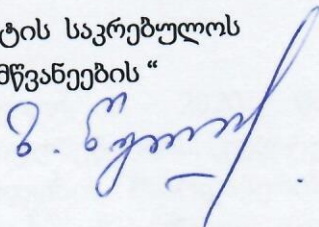 ტის საკრებულოს
მწვანეების“